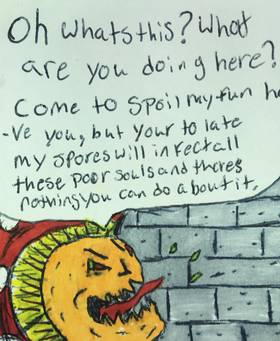 Oh whats this? What
are you doing here?
Come to spoil my fun ha
-ve you, but your to late
my spores will infect all
these poor souls and theres
nothing you can do about it.